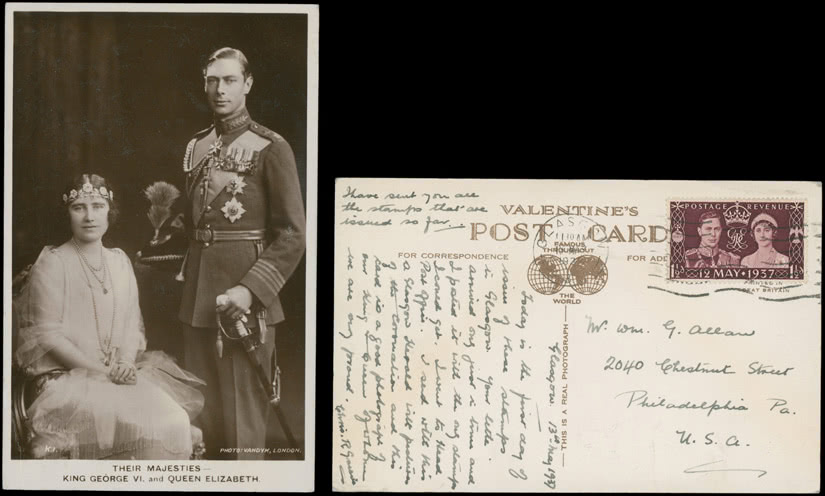 K.1.
PHOTO: VANDYK, LONDON.
THEIR MAJESTIES—
KING GEORGE VI. and QUEEN ELIZABETH.
I have sent you all
the stamps that are
issued so far
VALENTINE'S
POST CARD
FAMOUS
THROUGHOUT
THE
WORLD
FOR CORRESPONDENCE
FOR ADD
THIS IS A REAL PHOTOGRAPH
PRINTED IN
GREAT BRITAIN
POSTAGE REVENUE
12 MAY • 1937
GLASGOW
Glasgow. 13th May 1937
Today is the first day of
issue of these stamps
in Glasgow. Your letter
arrived only just in time and
I posted it with the only stamps
I could get. I went to Head
Post Office. I send with this
a Glasgow Herald with pictures
of the Coronation and this
card is a good photograph of
our King & Queen of whom
we are very proud.
Mr. Wm. G. Allan
2040 Chestnut Street
Philadelphia Pa.
U.S.A.